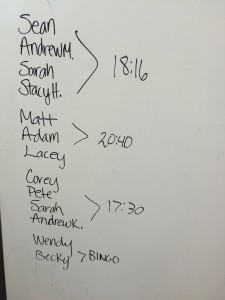 Sean
Andrew M.
Sarah
Stacy H.
18:16
Matt
Adam
Lacey
20:40
Corey
Pete
Sarah
Andrew K.
17:30
Wendy
Becky
BINGO